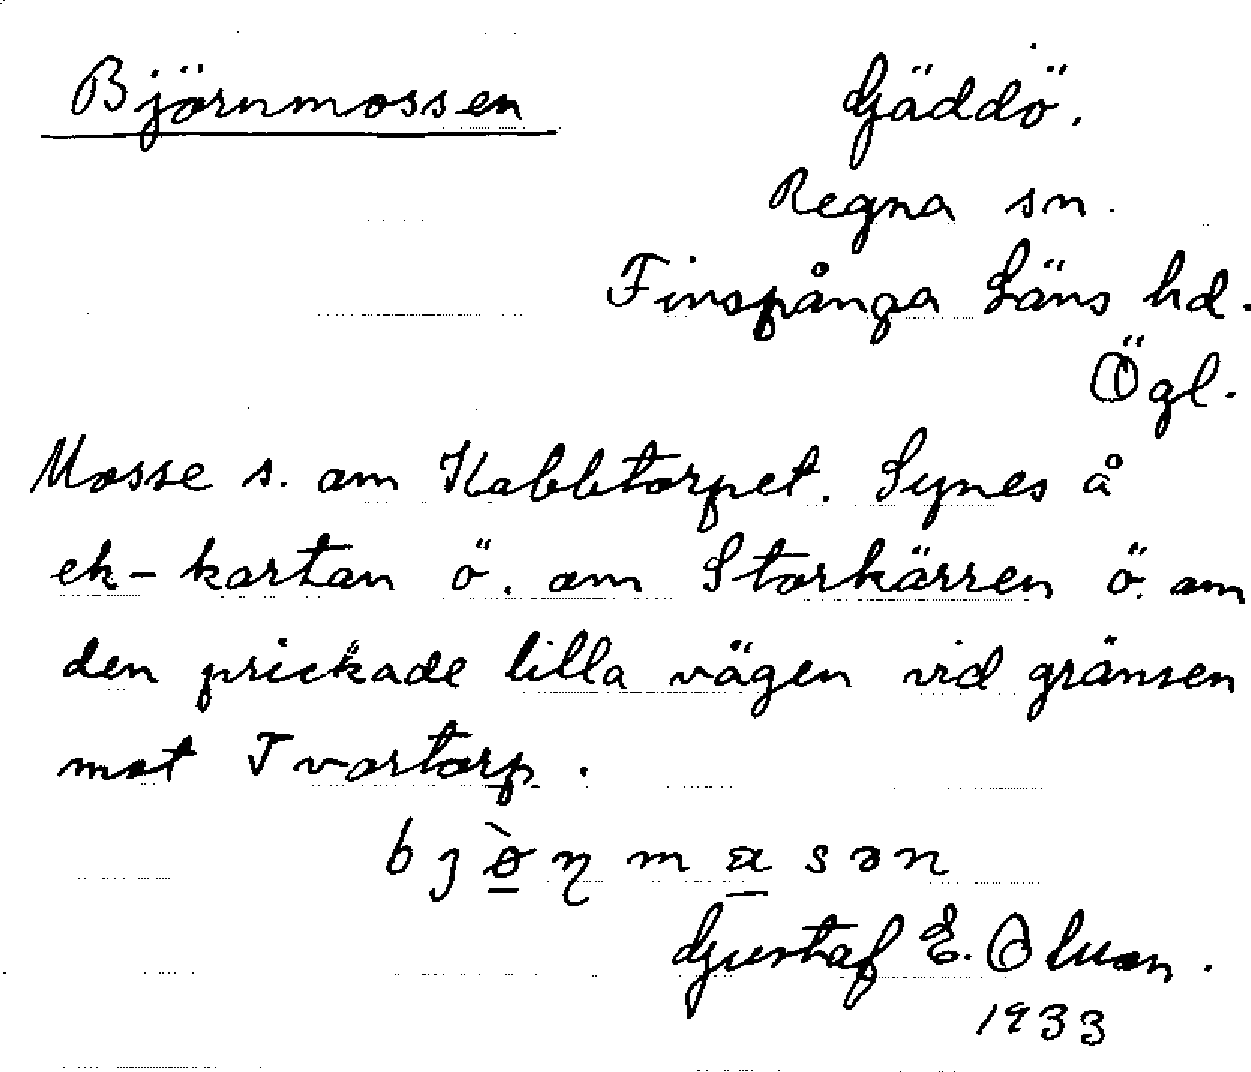 Björnmossen
Gäddö.
Regna sn.
Finspånga Läns hd.
Ögl.
Mosse s. om Kabbtorpet. Synes å
ek-kartan ö. om Storkärren ö. om
den prickade lilla vägen vid gränsen
mot Tvartorp.
Gustaf E.
1933